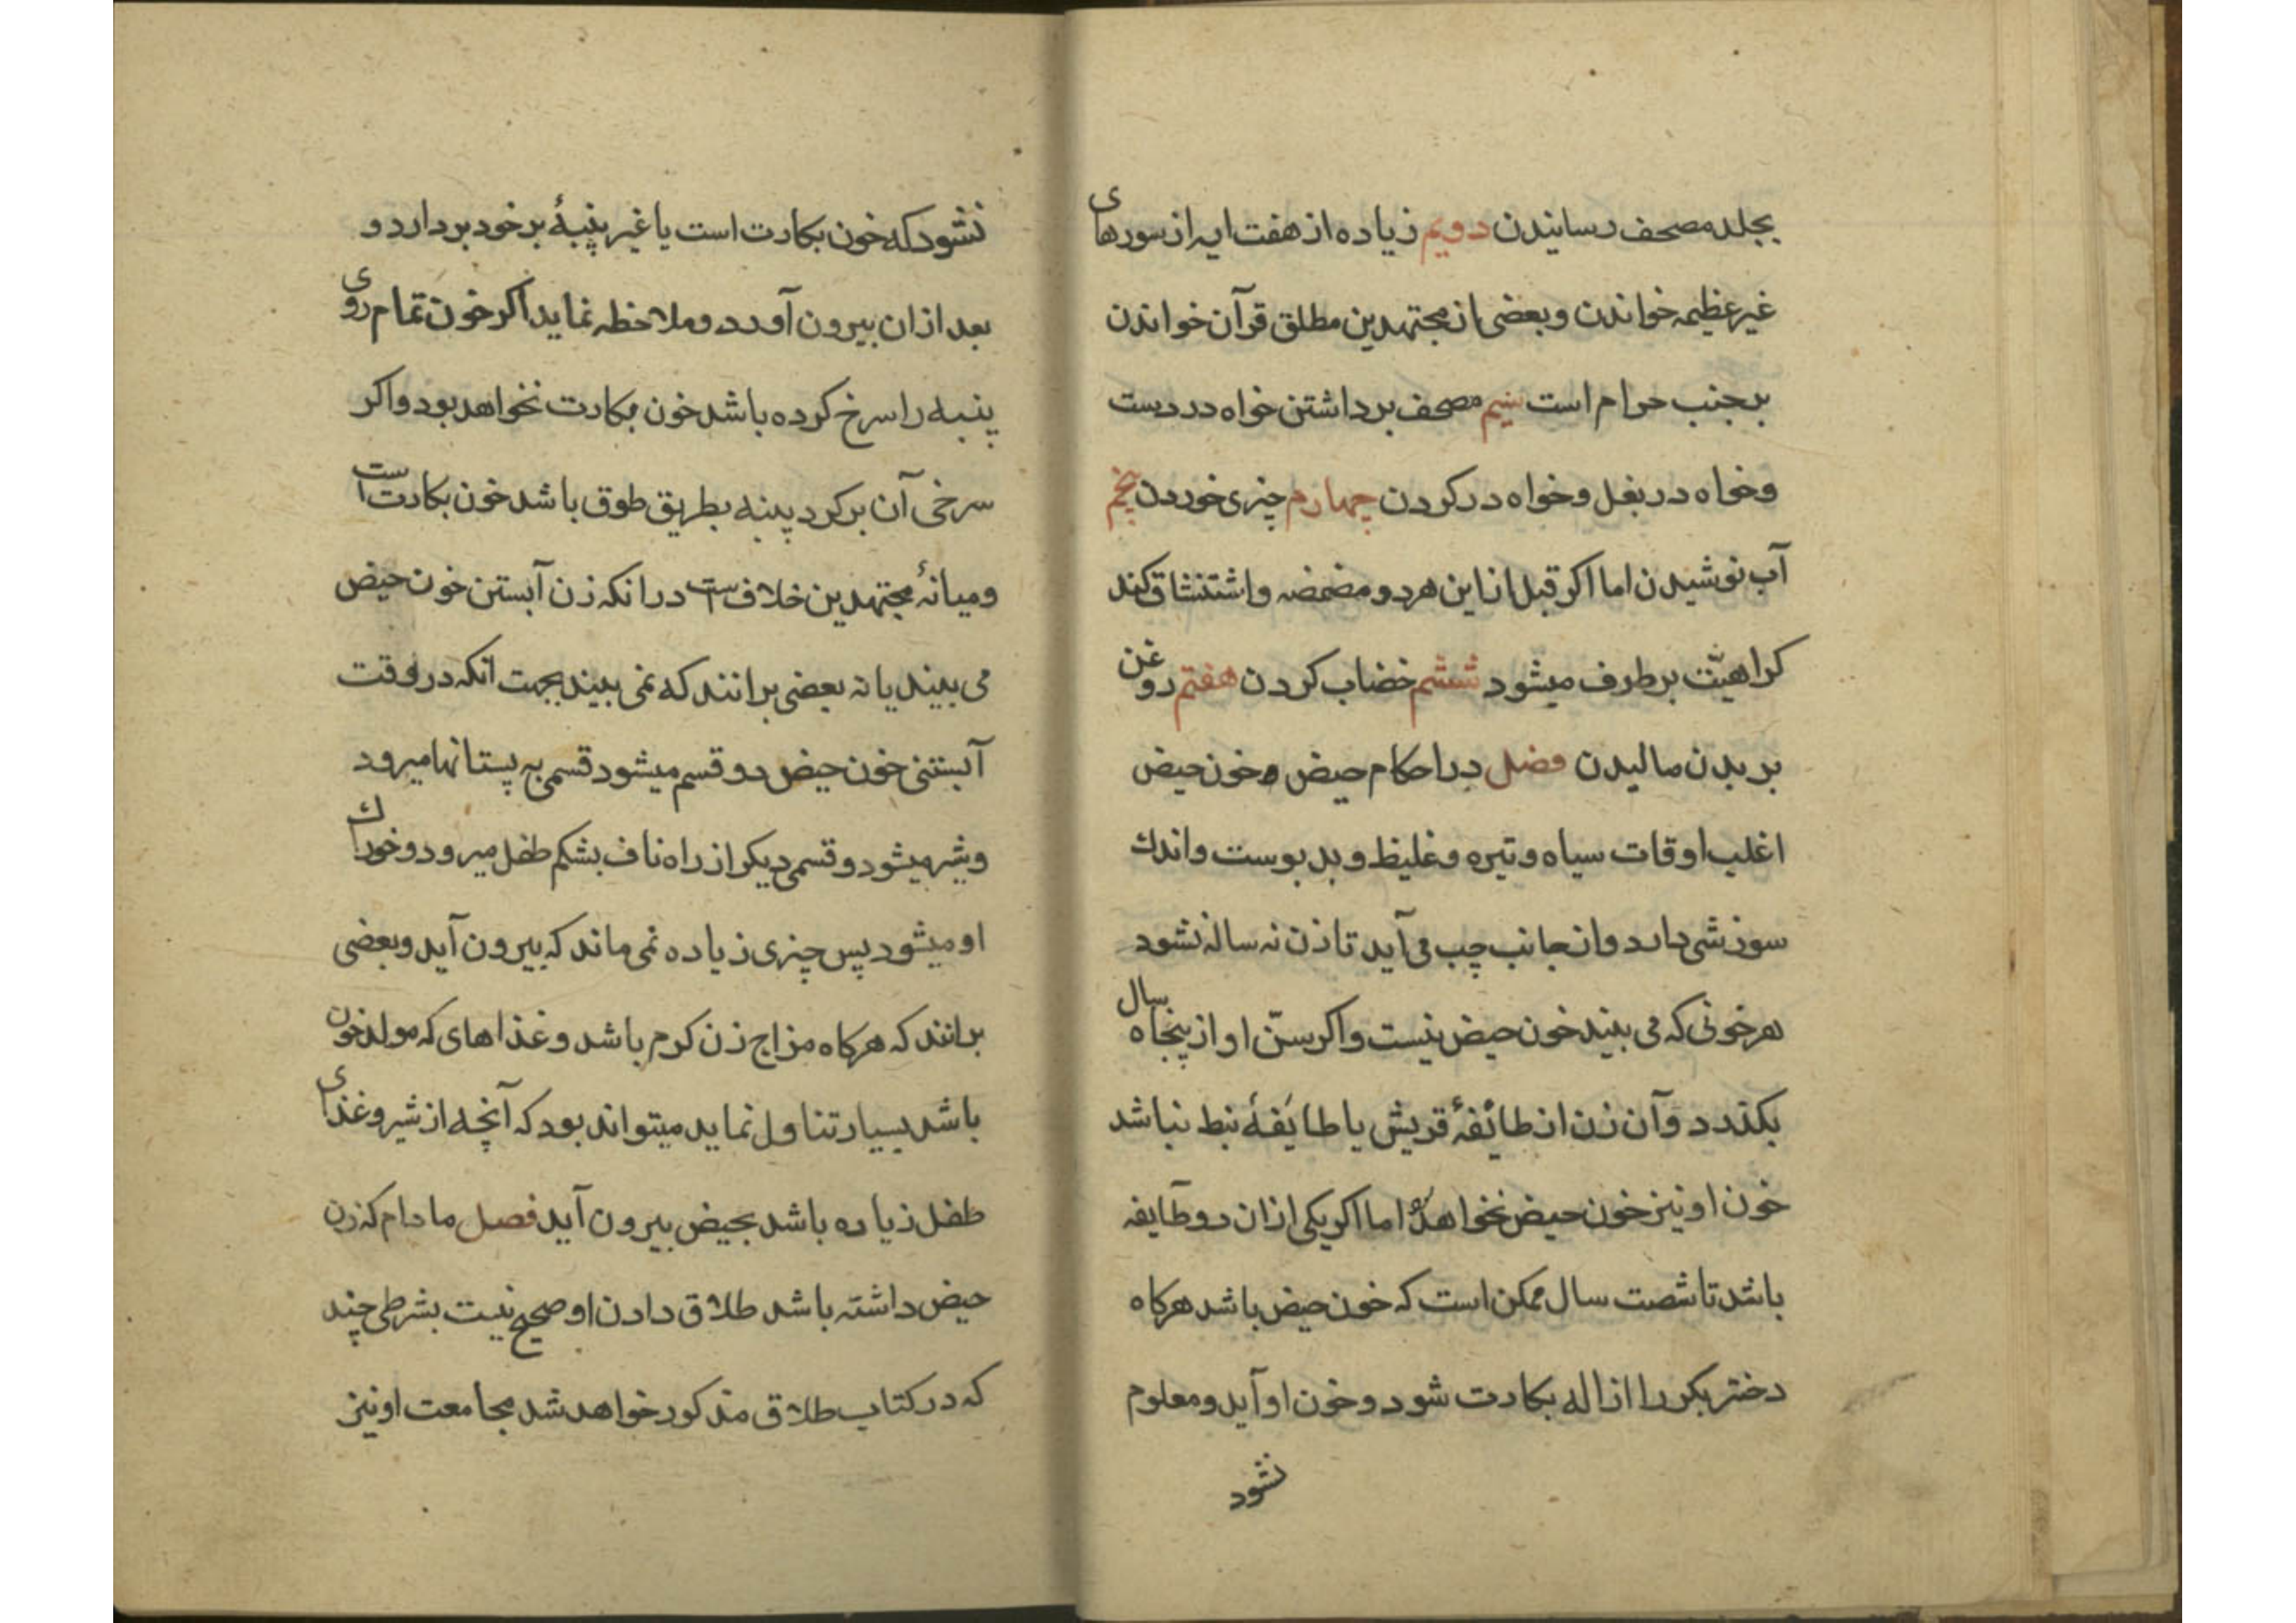 بجلد مصحف رسانیدن دویم زیاده از هفت ایه از سورهای
غیر عظیمه خواندن و بعضی از مجتهدین مطلق قرآن خواندن
بر جنب حرام است سیم مصحف برداشتن خواه در دست
وخواه در بغل وخواه در کردن چهارم چیزی خوردن پنجم
آب نوشیدن اما اکر قبل از این هر دو مضمضه واشتنشاق کند
کراهیّت بر طرف میشود ششم خضاب کردن هفتم روغن
بر بدن مالیدن فصل در احکام حیض و خون حیض
اغلب اوقات سیاه و تیره و غلیظ و بد بوست واندك
سوزشی دارد واز جانب چپ می آید تا زن نه ساله نشود
هر خونی که می بیند خون حیض نیست واکر سنّ او از پنجاه سال
بکذرد وآن زن از طائفهٔ قریش یا طایفهٔ نبط نباشد
خون او نیز خون حیض نخواهد اما اکر یکی ازان دو طایفه
باشد تا شصت سال ممکن است که خون حیض باشد هرکاه
دختر بکر را ازاله بکارت شود وخون او آید ومعلوم
نشود
نشود که خون بکارت است یا غیر پنبهٔ بر خود بردارد و
بعد ازان بیرون آورد وملاحظه نماید اکر خون تمام روی
پنبه را سرخ کرده باشد خون بکارت نخواهد بود واکر
سرخی آن بر کرد پنبه بطریق طوق باشد خون بکارت است
ومیانهٔ مجتهدین خلاف است در انکه زن آبستن خون حیض
می بیند یا نه بعضی برانند که نمی بیند بجهت انکه در وقت
آبستنی خون حیض دو قسم میشود قسمی به پستانها میرود
وشیر میشود وقسمی دیکر از راه ناف بشکم طفل میرود وخوراك
او میشود پس چیزی زیاده نمی ماند که بیرون آید وبعضی
برانند که هرکاه مزاج زن کرم باشد وغذاهای که مولد خون
باشد بسیار تناول نماید میتواند بود که آنچه از شیر وغذای
طفل زیاده باشد بحیض بیرون آید فصل مادام که زن
حیض داشته باشد طلاق دادن او صحیح نیست بشرطی چند
که در کتاب طلاق مذکور خواهد شد مجامعت او نیز